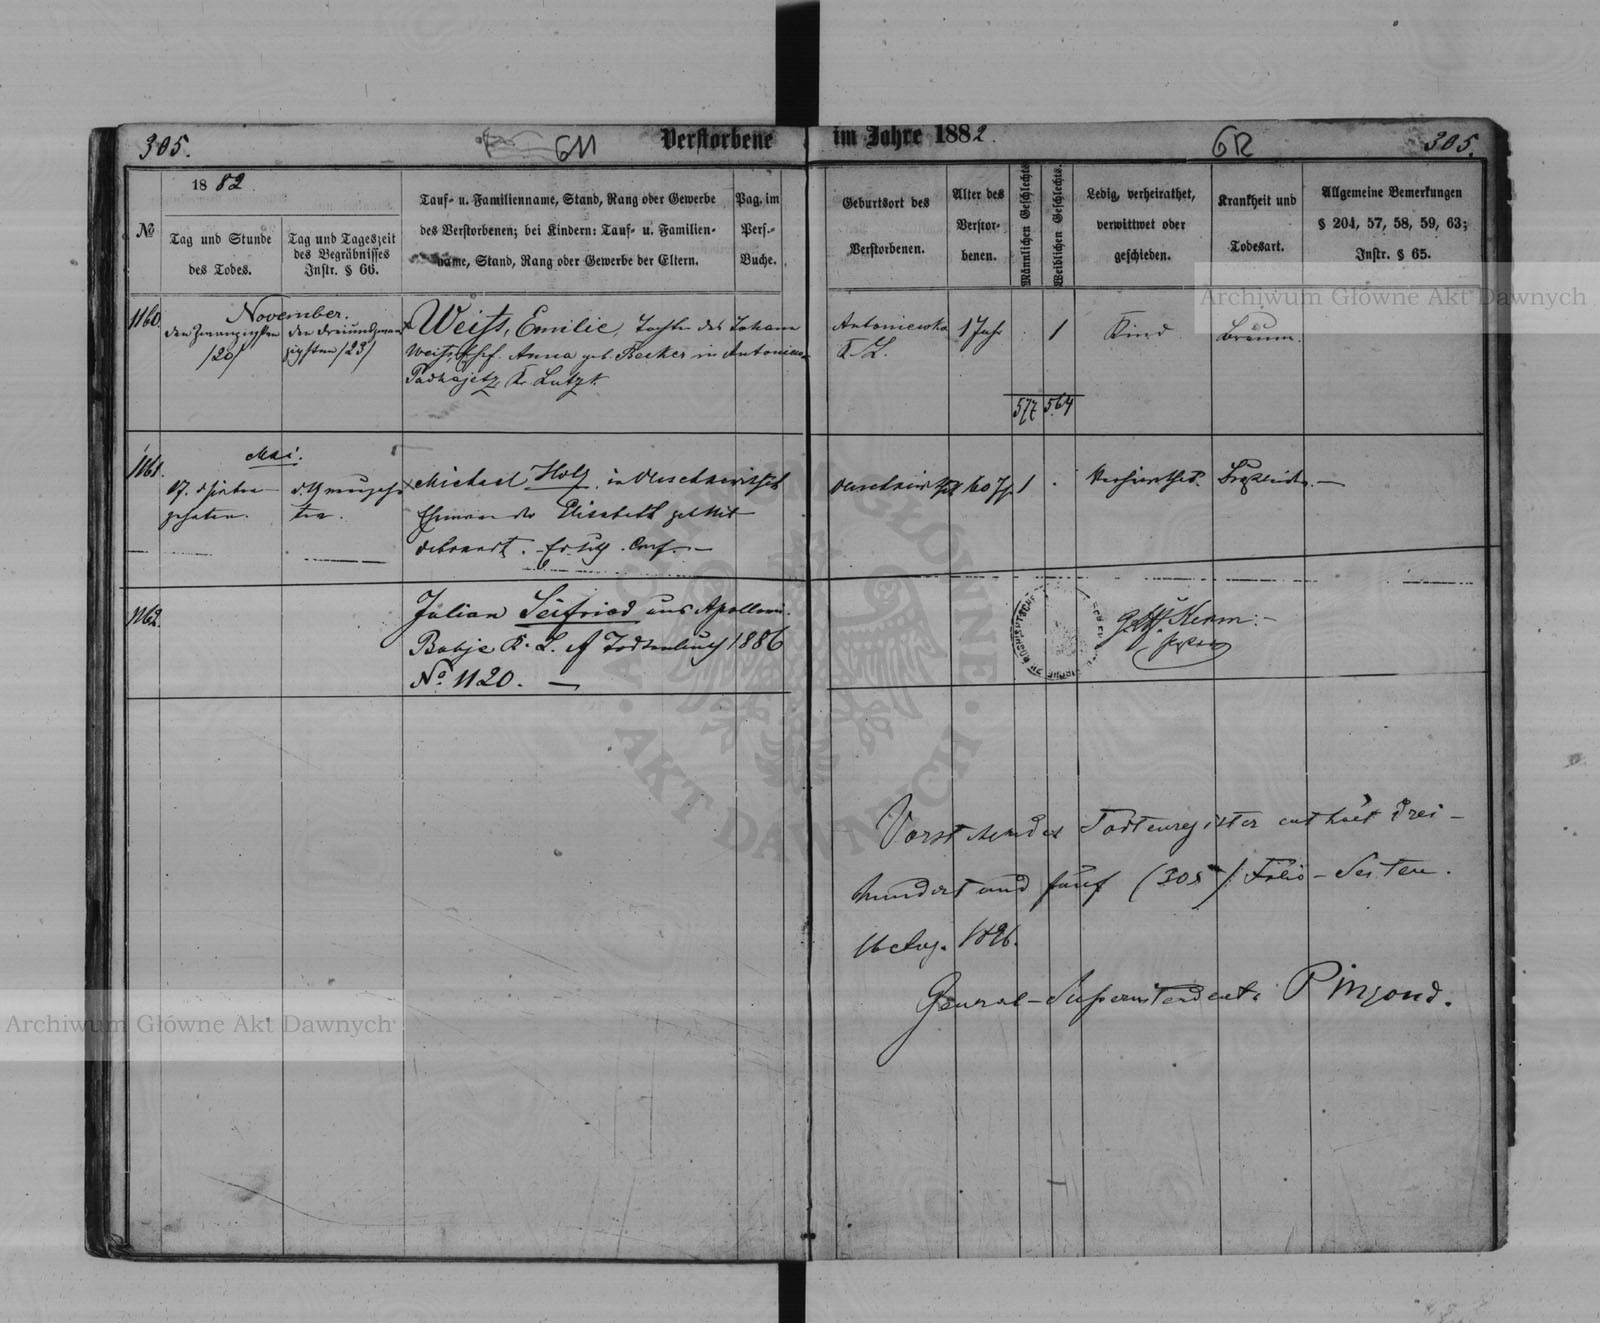 305.
611
Verstorbene im Jahre 1882.
612
305.
№
1882.
Tag und Stunde
des Todes.
Tag und Tageszeit
des Begräbnisses
Instr. § 66.
Tauf- u. Familienname, Stand, Rang oder Gewerbe
des Verstorbenen; bei Kindern: Tauf- u. Familien-
name, Stand, Rang oder Gewerbe der Eltern.
Pag. im
Pers.-
Buche.
Geburtsort des
Verstorbenen.
Alter des
Verstor-
benen.
Männlichen Geschlechts.
Weiblichen Geschlechts.
Ledig, verheirathet,
verwittwet oder
geschieden.
Krankheit und
Todesart.
Allgemeine Bemerkungen
§ 204, 57, 58, 59, 63;
Instr. § 65.
1160.
November.
den zwanzigsten
/20/
den dreiundzwan
zigsten /23/
Weiss, Emilie, Tochter des Johann
Weiss, Anna geb. Becker in Antoniewka
Padhajetz Kr. Lutzk.
Antoniewka
K. L.
1 Jahr
1
Kind
Bräune.
577 564
1161.
Mai.
17.
Michael Holz, in
Ehemann der Elisabeth geb. Hil
debrandt.
60 J.
1
Verheirathet.
1162.
Julian Seifried aus Apollon.
Babje K. L. cf Todtenbuch 1886
No. 1120. —
Vorstehendes Todtenregister enthält drei-
hundert und fünf (305) Folio-Seiten.
16 Aug. 1896.
General-Superintendent: Pingoud.
Archiwum Główne Akt Dawnych
Archiwum Główne Akt Dawnych